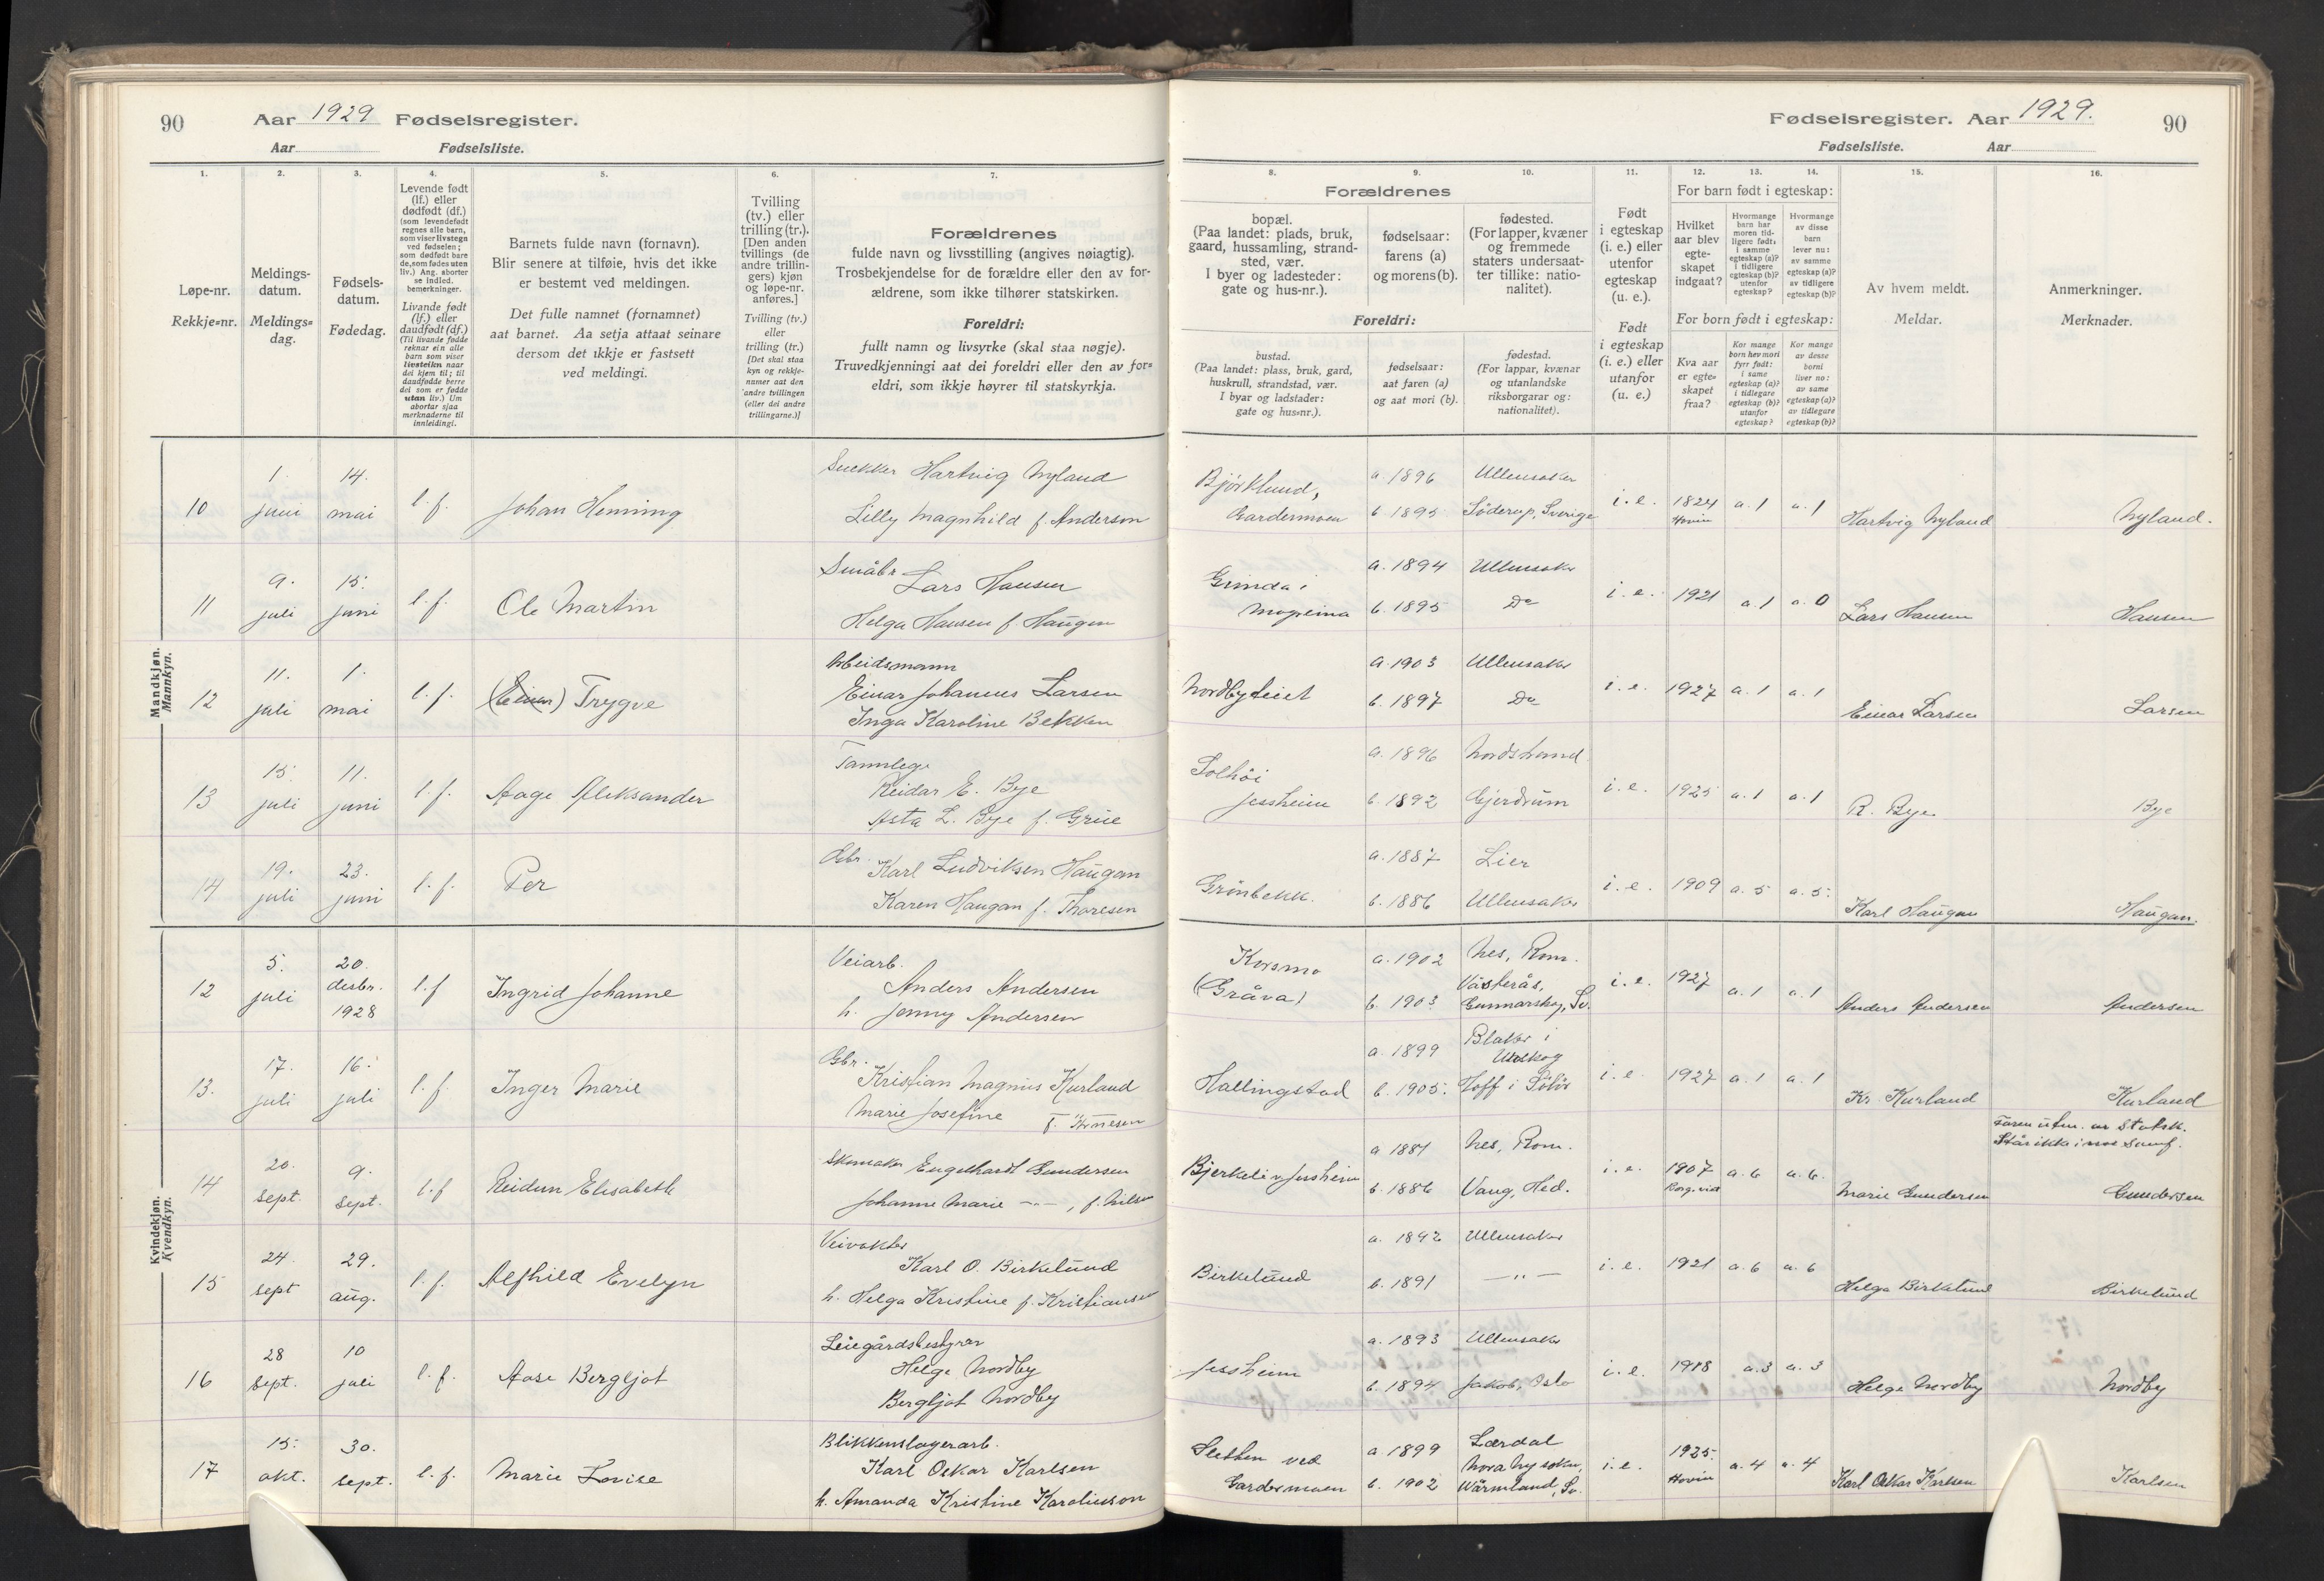 90
Aar 1929 Fødselsregister.
Aar Fødselsliste.
1.
2.
3.
4.
5.
6.
7.
Løpe-nr.
Rekkje=nr.
Meldings-
datum.
Meldings=
dag.
Fødsels-
datum.
Fødedag.
Levende født
(lf.) eller
dødfødt (df.)
(som levendefødt
regnes alle barn,
som viser livstegn
ved fødselen;
som dødfødt bare
de, som fødes uten
liv.) Ang. aborter
se indled.
bemerkninger.
Livande født
(lf.) eller
daudfødt (df.)
(Til livande fødde
reknar ein alle
barn som viser
livsteikn naar
dei kjem til; til
daudfødde berre
dei som er fødde
utan liv.) Um
abortar sjaa
merknaderne til
innleidingi.
Barnets fulde navn (fornavn).
Blir senere at tilføie, hvis det ikke
er bestemt ved meldingen.
Det fulle namnet (fornamnet)
aat barnet. Aa setja attaat seinare
dersom det ikkje er fastsett
ved meldingi.
Tvilling
(tv.) eller
trilling (tr.).
[Den anden
tvillings (de
andre trillin-
gers) kjøn
og løpe-nr.
anføres.]
Tvilling (tv.)
eller
trilling (tr.)
[Det skal staa
kyn og rekkje-
numer aat den
andre tvillingen
(eller dei andre
trillingarne.)]
Forældrenes
fulde navn og livsstilling (angives nøiagtig).
Trosbekjendelse for de forældre eller den av for-
ældrene, som ikke tilhører statskirken.
Foreldri:
fullt namn og livsyrke (skal staa nøgje).
Truvedkjenningi aat dei foreldri eller den av for=
eldri, som ikkje høyrer til statskyrkja.
Mandkjøn.
Mannkyn.
10
1. juni
14. mai
l. f.
Johan Henning
Snekker Hartvig Nyland
Lilly Magnhild f. Anderson
11
9. juli
15. juni
l. f.
Ole Martin
Småbr. Lars Hansen
Helga Hansen f. Haugen
12
11. juli
1. mai
l. f.
(Einar) Trygve
Arbeidsmann
Einar Johannes Larsen
Inga Karoline Bekken
13
15. juli
11. juni
l. f.
Aage Aleksander
Tannlege
Reidar E. Bye
Asta L. Bye f. Griie
14
19. juli
23. juni
l. f.
Per
Gbr. Karl Ludviksen Haugan
Karen Haugan f. Thoresen
Kvindekjøn.
Kvendkyn.
12
5. juli
20. desbr. 1928
l. f
Ingrid Johanne
Veiarb.
Anders Andersen
h. Jenny Andersen
13.
17. juli
16. juli
l. f.
Inger Marie
Gbr. Kristian Magnus Kurland
Marie Josefine
14
20. sept.
9. sept.
l. f
Reidun Elisabeth
Skomaker Engelhardt Gundersen
Johanne Marie —"—, f. Nilsen
15
24. sept
29. aug.
l. f.
Alfhild Evelyn
Veivokter
Karl O. Birkelund
h. Helga Kristine f. Kristiansen
16
28 sept.
10 juli
l. f.
Aase Bergljot
Leiegårdsbestyrer
Helge Nordby
Bergljot Nordby
17
15. okt.
30. sept.
l. f.
Marie Lovise
Blikkenslagerarb.
Karl Oskar Karlsen
h. Amanda Kristine Karolinsson
Fødselsregister. Aar 1929.
90
Fødselsliste. Aar
8.
9.
10.
11.
12.
13.
14.
15.
16.
Forældrenes
bopæl.
(Paa landet: plads, bruk,
gaard, hussamling, strand-
sted, vær.
I byer og ladesteder:
gate og hus-nr.).
fødselsaar:
farens (a)
og morens (b).
fødested.
(For lapper, kvæner
og fremmede
staters undersaat-
ter tillike: natio-
nalitet).
Foreldri:
bustad.
(Paa landet: plass, bruk, gard,
huskrull, strandstad, vær.
I byar og ladstader:
gate og hus=nr.).
fødselsaar:
aat faren (a)
og aat mori (b).
fødestad.
(For lappar, kvænar
og utanlandske
riksborgarar og:
nationalitet).
Født
i egteskap
(i. e.) eller
utenfor
egteskap
(u. e.).
Født
i egteskap
(i. e.) eller
utanfor
(u. e.)
For barn født i egteskap:
Hvilket
aar blev
egte-
skapet
indgaat?
Hvormange
barn har
moren tid-
ligere født:
i samme
egteskap (a)?
i tidligere
egteskap (b)?
utenfor
egteskap?
Hvormange
av disse
barn
lever nu:
av samme
egteskap (a)?
av tidligere
egteskap (b)?
For born født i egteskap:
Kva aar
er egte=
skapet
fraa?
Kor mange
born hev mori
fyrr født:
i same
egteskap (a)?
i tidlegare
egteskap (b)?
utanfor
egteskap?
Kor mange
av desse
borni
liver no:
av same
egteskap (a)?
av tidlegare
egteskap (b)?
Av hvem meldt.
Meldar.
Anmerkninger.
Merknader.
Bjørklund,
Gardermoen
a. 1896
b 1895
Ullensaker
Söderup, Sverige
i. e.
1924
Hovin
a. 1
a. 1
Hartvig Nyland
Nyland.
Grinda i
Mogreina
a. 1894
b. 1895
Ullensaker
Do
i. e.
1921
a. 1
a. 0
Lars Hansen
Hansen
Nordbyteiet
a. 1903
b. 1897
Ullensaker
Do
i. e.
1927
a. 1
a. 1
Einar Larsen
Larsen
Solhöi
Jessheim
a. 1896
b. 1892
Nordstrand
Gjerdrum
i. e.
1925
a. 1
a. 1
R. Bye
Bye
Grönbekk.
a. 1887
b. 1886
Lier
Ullensaker
i. e.
1909
a. 5
a. 5.
Karl Haugan
Haugan.
Korsmo
(Gråva)
a. 1902
b. 1903
Nes, Rom.
Västerås,
Gunnarskog, Sv.
i. e.
1927
a. 1
a. 1
Anders Andersen
Andersen
Hallingstad
a. 1899
b. 1905.
Blaker i
Urskog
Hoff i Solör
i. e
1927
a. 1
a. 1
Kr. Kurland
Kurland
Bjerkeli v/Jessheim
a 1881
b. 1886
Nes, Rom.
Vang, Hed.
i. e.
1907
Borg. vid
a. 6
a. 6.
Marie Gundersen
Faren utm. av Statsk.
Står ikke i noe Samf.
Gundersen
Birkelund
a. 1892
b. 1891
Ullensaker
—"—
i. e.
1921
a. 6
a. 6
Helga Birkelund
Birkelund
Jessheim
a. 1893
b. 1894
Ullensaker
Jakob, Oslo
i. e.
1918
a. 3
a. 3
Helge Nordby
Nordby
Sletten ved
Gardermoen
a. 1899
b. 1902
Lærdal
Nora Ny sokn,
Wärmland, Sv.
i. e.
1925.
Hovin
a. 4
a. 4
Karl Oskar Karlsen
Karlsen